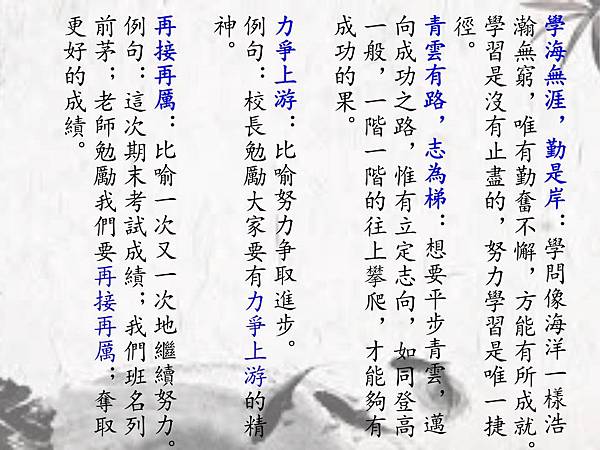 學海無涯，勤是岸：學問像海洋一樣浩
瀚無窮，唯有勤奮不懈，方能有所成就。
學習是沒有止盡的，努力學習是唯一捷
徑。
青雲有路，志為梯：想要平步青雲，邁
向成功之路，惟有立定志向，如同登高
一般，一階一階的往上攀爬，才能夠有
成功的果。
力爭上游：比喻努力爭取進步。
例句：校長勉勵大家要有力爭上游的精
神。
再接再厲：比喻一次又一次地繼續努力。
例句：這次期末考試成績；我們班名列
前茅；老師勉勵我們要再接再厲；奪取
更好的成績。